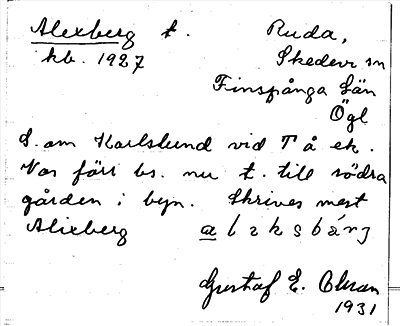 Alexberg t. Ruda,
kb. 1927 Skedevi sn
Finspånga län
Ögl
S. om Karlslund vid T å ek.
Var förr bs. nu t. till södra
gården i byn. Skrives mest
Alixberg
Gustaf E.
1931